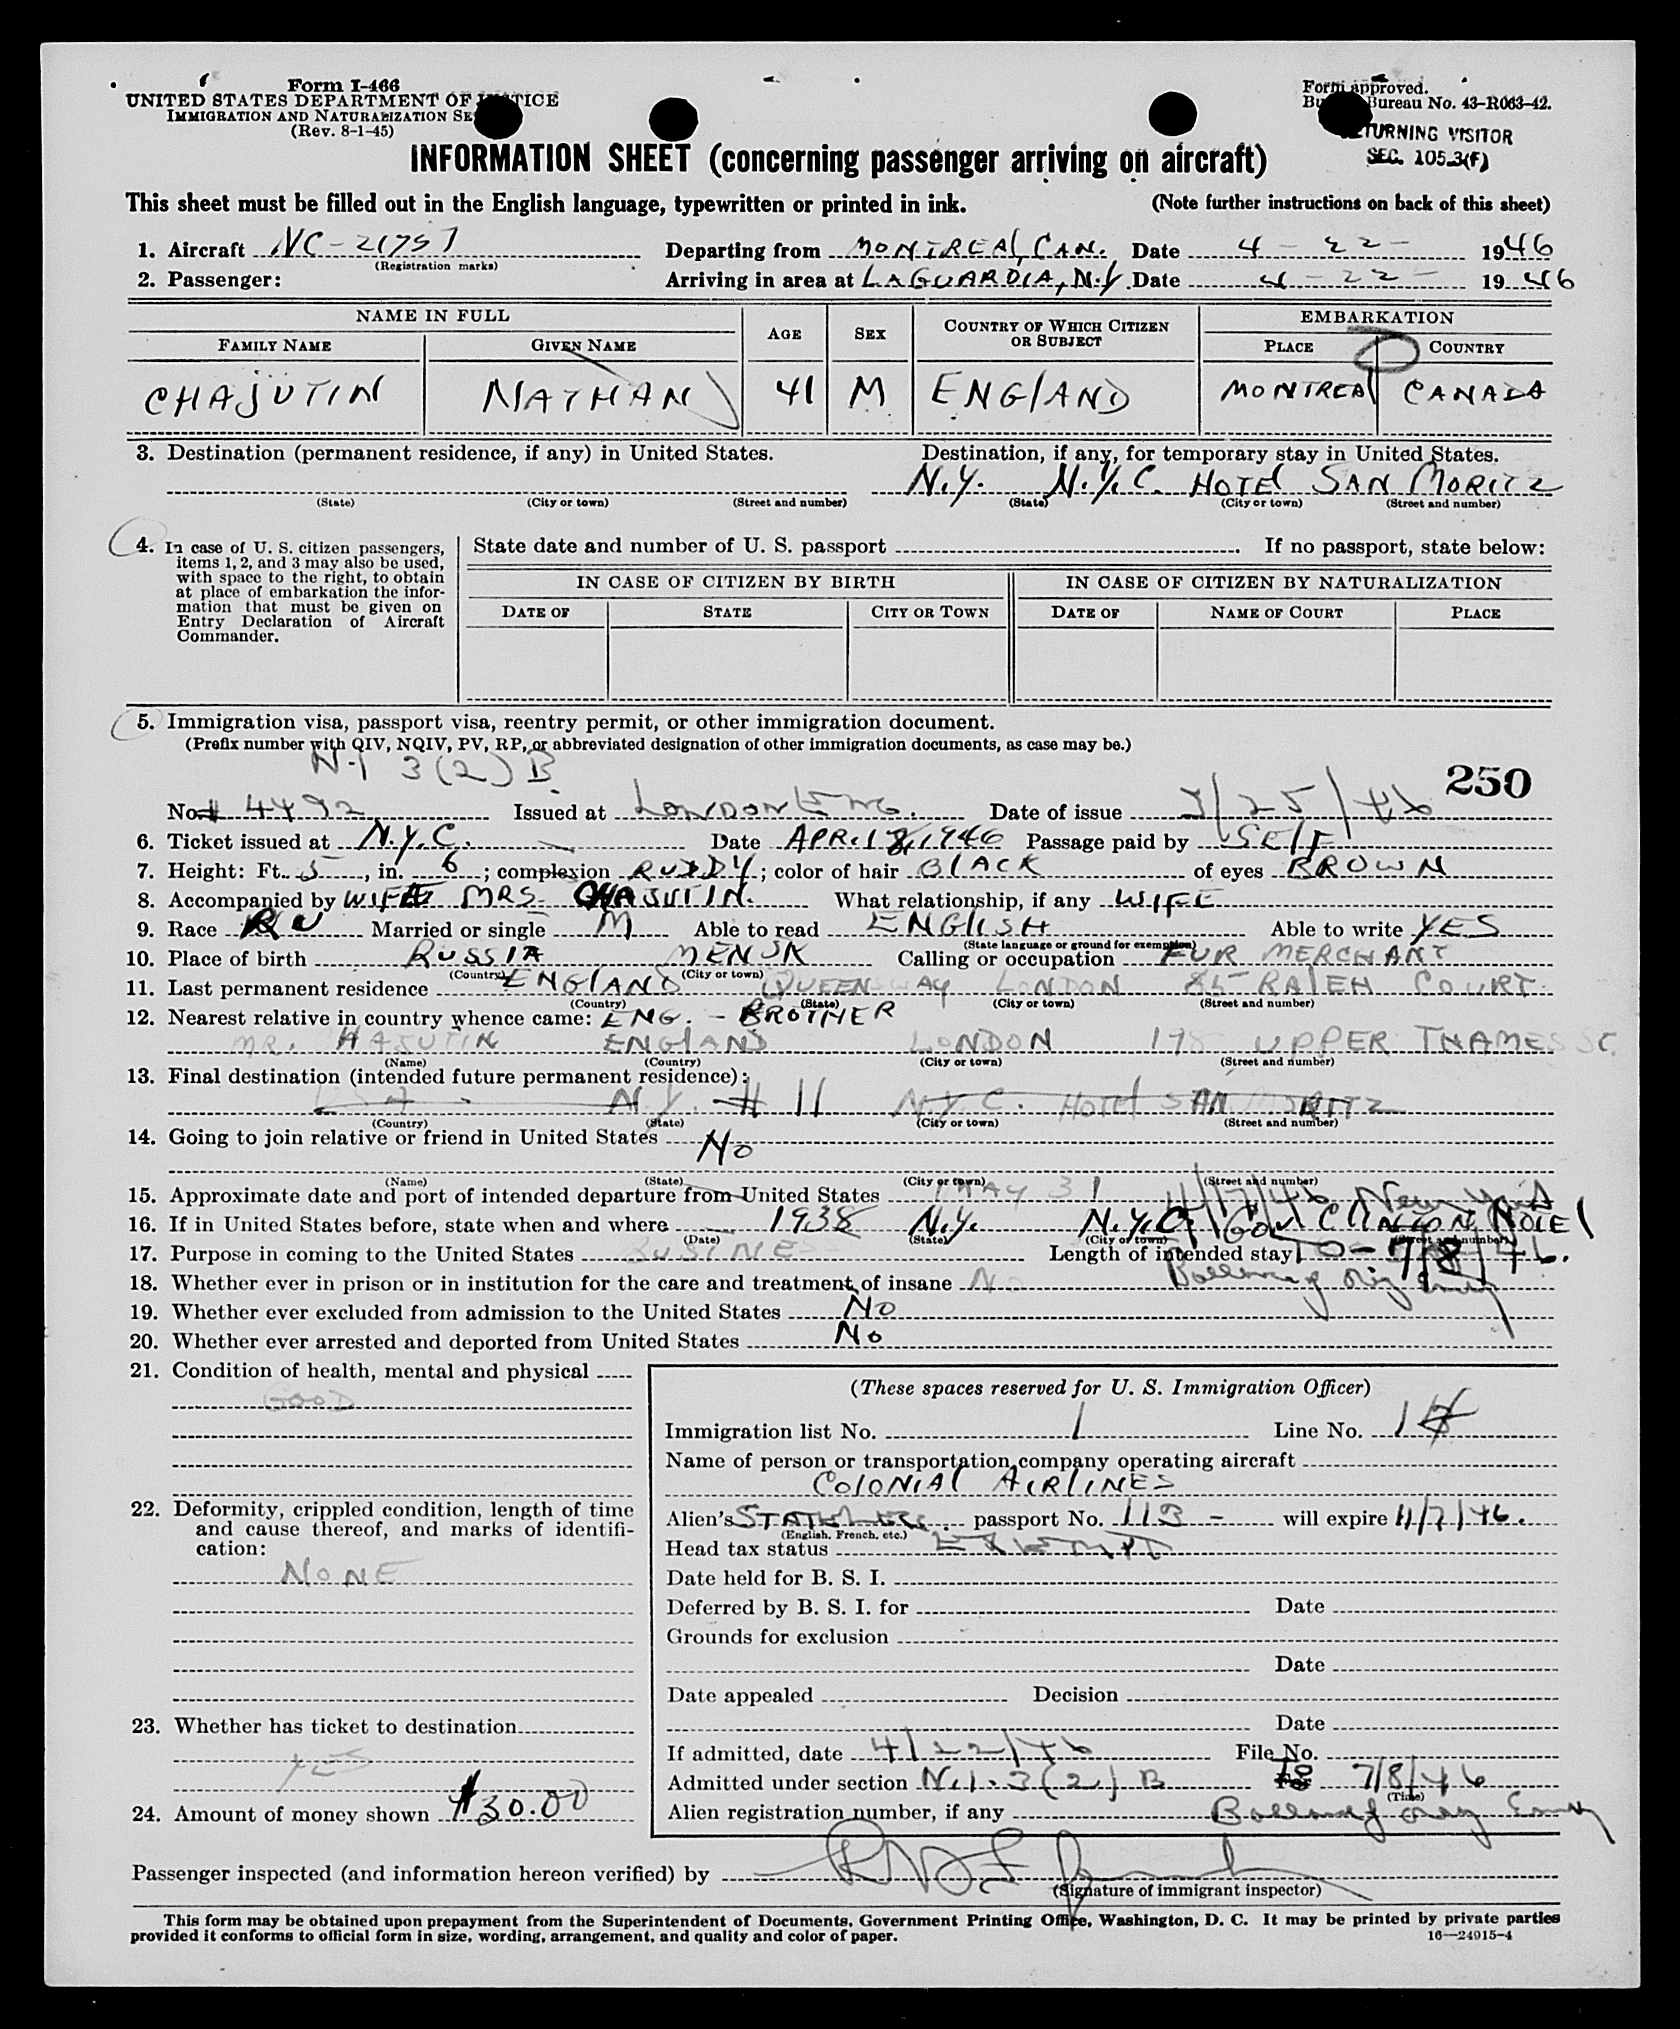 Form I-466
UNITED STATES DEPARTMENT OF JUSTICE
IMMIGRATION AND NATURALIZATION SE
(Rev. 8-1-45)
Form approved.
Bureau No. 43-R063-42.
RETURNING VISITOR
SEC. 105.3(F)
INFORMATION SHEET (concerning passenger arriving on aircraft)
This sheet must be filled out in the English language, typewritten or printed in ink. (Note further instructions on back of this sheet)
1. Aircraft NC-21757 Departing from MONTREAL, CAN. Date 4-22- 1946
(Registration marks)
2. Passenger: Arriving in area at LAGUARDIA, N.Y. Date 4-22- 1946
NAME IN FULL AGE SEX COUNTRY OF WHICH CITIZEN OR SUBJECT EMBARKATION
FAMILY NAME GIVEN NAME PLACE COUNTRY
CHAJUTIN NATHAN 41 M ENGLAND MONTREAL CANADA
3. Destination (permanent residence, if any) in United States. Destination, if any, for temporary stay in United States.
N.Y. N.Y.C. HOTEL SAN MORITZ
(State) (City or town) (Street and number) (State) (City or town) (Street and number)
4. In case of U. S. citizen passengers, items 1, 2, and 3 may also be used, with space to the right, to obtain at place of embarkation the information that must be given on Entry Declaration of Aircraft Commander.
State date and number of U. S. passport . If no passport, state below:
IN CASE OF CITIZEN BY BIRTH IN CASE OF CITIZEN BY NATURALIZATION
DATE OF STATE CITY OR TOWN DATE OF NAME OF COURT PLACE
5. Immigration visa, passport visa, reentry permit, or other immigration document.
(Prefix number with QIV, NQIV, PV, RP, or abbreviated designation of other immigration documents, as case may be.)
N-1 3(2)B
250
No. # 4492 Issued at LONDON ENG. Date of issue 3/25/46
6. Ticket issued at N.Y.C. Date APR. 18, 1946 Passage paid by SELF
7. Height: Ft. 5, in. 6; complexion RUDDY; color of hair BLACK of eyes BROWN
8. Accompanied by WIFE MRS. CHAJUTIN. What relationship, if any WIFE
9. Race RU Married or single M Able to read ENGLISH Able to write YES
(State language or ground for exemption)
10. Place of birth RUSSIA MENSK Calling or occupation FUR MERCHANT
(Country) (City or town)
11. Last permanent residence ENGLAND QUEENSWAY LONDON 85 RALEH COURT
(Country) (State) (City or town) (Street and number)
12. Nearest relative in country whence came: ENG. - BROTHER
MR. HAJUTIN ENGLAND LONDON 178 UPPER THAMES ST.
(Name) (Country) (City or town) (Street and number)
13. Final destination (intended future permanent residence):
N.Y. # 11 N.Y.C. HOTEL SAN MORITZ
(Country) (State) (City or town) (Street and number)
14. Going to join relative or friend in United States No
(Name) (State) (City or town) (Street and number)
15. Approximate date and port of intended departure from United States MAY 31 11/7/46 New York
16. If in United States before, state when and where 1938 N.Y. N.Y.C. Gov. CLINTON HOTEL
(Date) (State) (City or town) (Street and number)
17. Purpose in coming to the United States BUSINESS Length of intended stay TO - 7/8/46.
18. Whether ever in prison or in institution for the care and treatment of insane No
19. Whether ever excluded from admission to the United States No
20. Whether ever arrested and deported from United States No
21. Condition of health, mental and physical
GOOD
22. Deformity, crippled condition, length of time and cause thereof, and marks of identification:
NONE
23. Whether has ticket to destination
YES
24. Amount of money shown $30.00
(These spaces reserved for U. S. Immigration Officer)
Immigration list No. 1 Line No. 1
Name of person or transportation company operating aircraft
COLONIAL AIRLINES
Alien's STATELESS passport No. 113 - will expire 11/7/46.
(English, French, etc.)
Head tax status EXEMPT
Date held for B. S. I.
Deferred by B. S. I. for Date
Grounds for exclusion
Date
Date appealed Decision
Date
If admitted, date 4/22/46 File No.
Admitted under section N.1. 3(2) B TO 7/8/46
(Time)
Alien registration number, if any
Passenger inspected (and information hereon verified) by
(Signature of immigrant inspector)
This form may be obtained upon prepayment from the Superintendent of Documents, Government Printing Office, Washington, D. C. It may be printed by private parties
provided it conforms to official form in size, wording, arrangement, and quality and color of paper. 16—24915-4